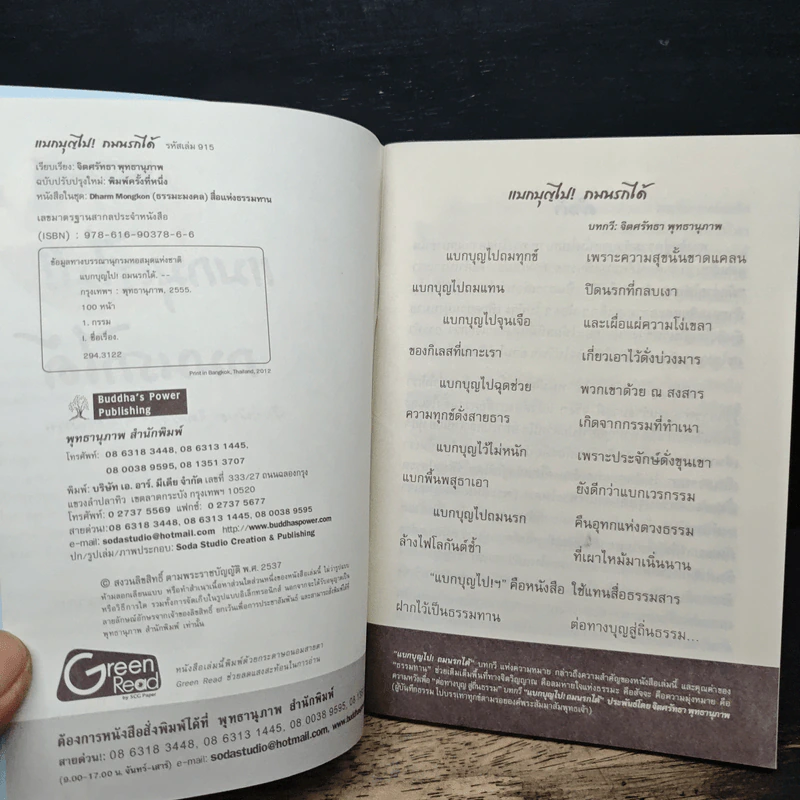 แบกบุญไป! ถมนรกได้ รหัสเล่ม 915
เรียบเรียง: จิตศรัทธา พุทธานุภาพ
ฉบับปรับปรุงใหม่: พิมพ์ครั้งที่หนึ่ง
หนังสือในชุด: Dharm Mongkon (ธรรมะมงคล) สื่อแห่งธรรมทาน
เลขมาตรฐานสากลประจำหนังสือ
(ISBN) : 978-616-90378-6-6
ข้อมูลทางบรรณานุกรมหอสมุดแห่งชาติ
แบกบุญไป! ถมนรกได้. --
กรุงเทพฯ : พุทธานุภาพ, 2555.
100 หน้า
1. กรรม
I. ชื่อเรื่อง.
294.3122
Print in Bangkok, Thailand, 2012
Buddha's Power
Publishing
พุทธานุภาพ สำนักพิมพ์
โทรศัพท์: 08 6318 3448, 08 6313 1445,
08 0038 9595, 08 1351 3707
พิมพ์: บริษัท เอ. อาร์. มีเดีย จำกัด เลขที่ 333/27 ถนนฉลองกรุง
แขวงลำปลาทิว เขตลาดกระบัง กรุงเทพฯ 10520
โทรศัพท์: 0 2737 5569 แฟกซ์: 0 2737 5677
สายด่วน!: 08 6318 3448, 08 6313 1445, 08 0038 9595
e-mail: sodastudio@hotmail.com http://www.buddhaspower.com
ปก/รูปเล่ม/ภาพประกอบ: Soda Studio Creation & Publishing
© สงวนลิขสิทธิ์ ตามพระราชบัญญัติ พ.ศ. 2537
ห้ามลอกเลียนแบบ หรือทำสำเนาเนื้อหาส่วนใดส่วนหนึ่งของหนังสือเล่มนี้ ไม่ว่ารูปแบบ
หรือวิธีการใด รวมทั้งการจัดเก็บในรูปแบบอิเล็กทรอนิกส์ นอกจากจะได้รับอนุญาตเป็น
ลายลักษณ์อักษรจากเจ้าของลิขสิทธิ์ ยกเว้นเพื่อการประชาสัมพันธ์ และสามารถสั่งพิมพ์ได้ที่
พุทธานุภาพ สำนักพิมพ์ เท่านั้น
Green
Read
by SCG Paper
หนังสือเล่มนี้พิมพ์ด้วยกระดาษถนอมสายตา
Green Read ช่วยลดแสงสะท้อนในการอ่าน
ต้องการหนังสือสั่งพิมพ์ได้ที่ พุทธานุภาพ สำนักพิมพ์
สายด่วน!: 08 6318 3448, 08 6313 1445, 08 0038 9595,
(9.00-17.00 น. จันทร์-เสาร์) e-mail: sodastudio@hotmail.com, http://www.budd
แบกบุญไป! ถมนรกได้
บทกวี: จิตศรัทธา พุทธานุภาพ
แบกบุญไปถมทุกข์ เพราะความสุขนั้นขาดแคลน
แบกบุญไปถมแทน ปิดนรกที่กลบเงา
แบกบุญไปจุนเจือ และเผื่อแผ่ความโง่เขลา
ของกิเลสที่เกาะเรา เกี่ยวเอาไว้ดั่งบ่วงมาร
แบกบุญไปฉุดช่วย พวกเขาด้วย ณ สงสาร
ความทุกข์ดั่งสายธาร เกิดจากกรรมที่ทำเนา
แบกบุญไว้ไม่หนัก เพราะประจักษ์ดั่งขุนเขา
แบกพื้นพสุธาเอา ยังดีกว่าแบกเวรกรรม
แบกบุญไปถมนรก คืนอุทกแห่งดวงธรรม
ล้างไฟโลกันต์ช้ำ ที่เผาไหม้มาเนิ่นนาน
“แบกบุญไป!ฯ” คือหนังสือ ใช้แทนสื่อธรรมสาร
ฝากไว้เป็นธรรมทาน ต่อทางบุญสู่ถิ่นธรรม...
“แบกบุญไป! ถมนรกได้” บทกวี แห่งความหมาย กล่าวถึงความสำคัญของหนังสือเล่มนี้ และคุณค่าของ
“ธรรมทาน” ช่วยเติมเต็มพื้นที่ทางจิตวิญญาณ คือลมหายใจแห่งธรรมะ คือสัจจะ คือความมุ่งหมาย คือ
ความหวังเพื่อ “ต่อทางบุญ สู่ถิ่นธรรม” บทกวี “แบกบุญไป! ถมนรกได้” ประพันธ์โดย จิตศรัทธา พุทธานุภาพ
(ผู้บันทึกธรรม ไปบรรเทาทุกข์ตามรอยองค์พระสัมมาสัมพุทธเจ้า)